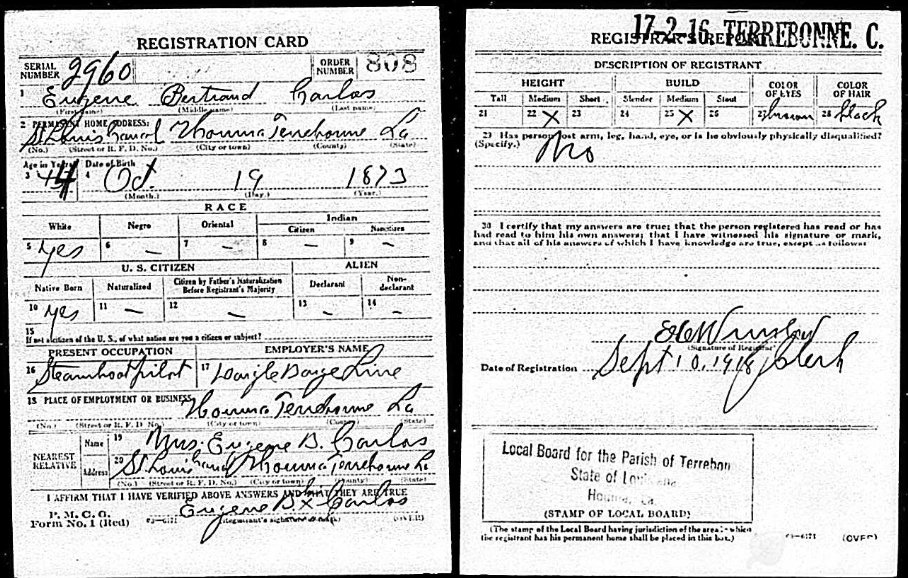 REGISTRATION CARD
SERIAL NUMBER 2960 ORDER NUMBER 808
1 Eugene Bertrand Carlos
(First name) (Middle name) (Last name)
2 PERMANENT HOME ADDRESS:
St Louis Canal Houma Terrebonne La
(No.) (Street or R. F. D. No.) (City or town) (County) (State)
Age in Years Date of Birth
3 44 4 Oct. 19 1873
(Month.) (Day.) (Year.)
RACE
White Negro Oriental Indian
Citizen Noncitizen
5 yes 6 — 7 — 8 — 9 —
U. S. CITIZEN ALIEN
Native Born Naturalized Citizen by Father's Naturalization Before Registrant's Majority Declarant Non-declarant
10 yes 11 — 12 — 13 — 14 —
15
If not a citizen of the U. S., of what nation are you a citizen or subject?
PRESENT OCCUPATION EMPLOYER'S NAME
16 Steamboat pilot 17 Daigle Barge Line
18 PLACE OF EMPLOYMENT OR BUSINESS
Houma Terrebonne La
(No.) (Street or R. F. D. No.) (City or town) (County) (State)
NEAREST RELATIVE Name 19 Mrs. Eugene B. Carlos
Address 20 St Louis Canal Houma Terrebonne La
(No.) (Street or R. F. D. No.) (City or town) (County) (State)
I AFFIRM THAT I HAVE VERIFIED ABOVE ANSWERS AND THAT THEY ARE TRUE
P. M. G. O.
Form No. 1 (Red) 03-6171 Eugene B X Carlos
(Registrant's signature or mark) (OVER)
17-2-16 TERREBONNE. C.
REGISTRAR'S REPORT
DESCRIPTION OF REGISTRANT
HEIGHT BUILD COLOR OF EYES COLOR OF HAIR
Tall Medium Short Slender Medium Stout
21 22 X 23 24 25 X 26 27 brown 28 black
29 Has person lost arm, leg, hand, eye, or is he obviously physically disqualified?
(Specify.) No
30 I certify that my answers are true; that the person registered has read or has
had read to him his own answers; that I have witnessed his signature or mark,
and that all of his answers of which I have knowledge are true, except as follows
(Signature of Registrar)
Date of Registration Sept 10, 1918 Clerk
Local Board for the Parish of Terrebon
State of Louisiana
Houma, La.
(STAMP OF LOCAL BOARD)
(The stamp of the Local Board having jurisdiction of the area in which
the registrant has his permanent home shall be placed in this box.)
03-6171 (OVER)